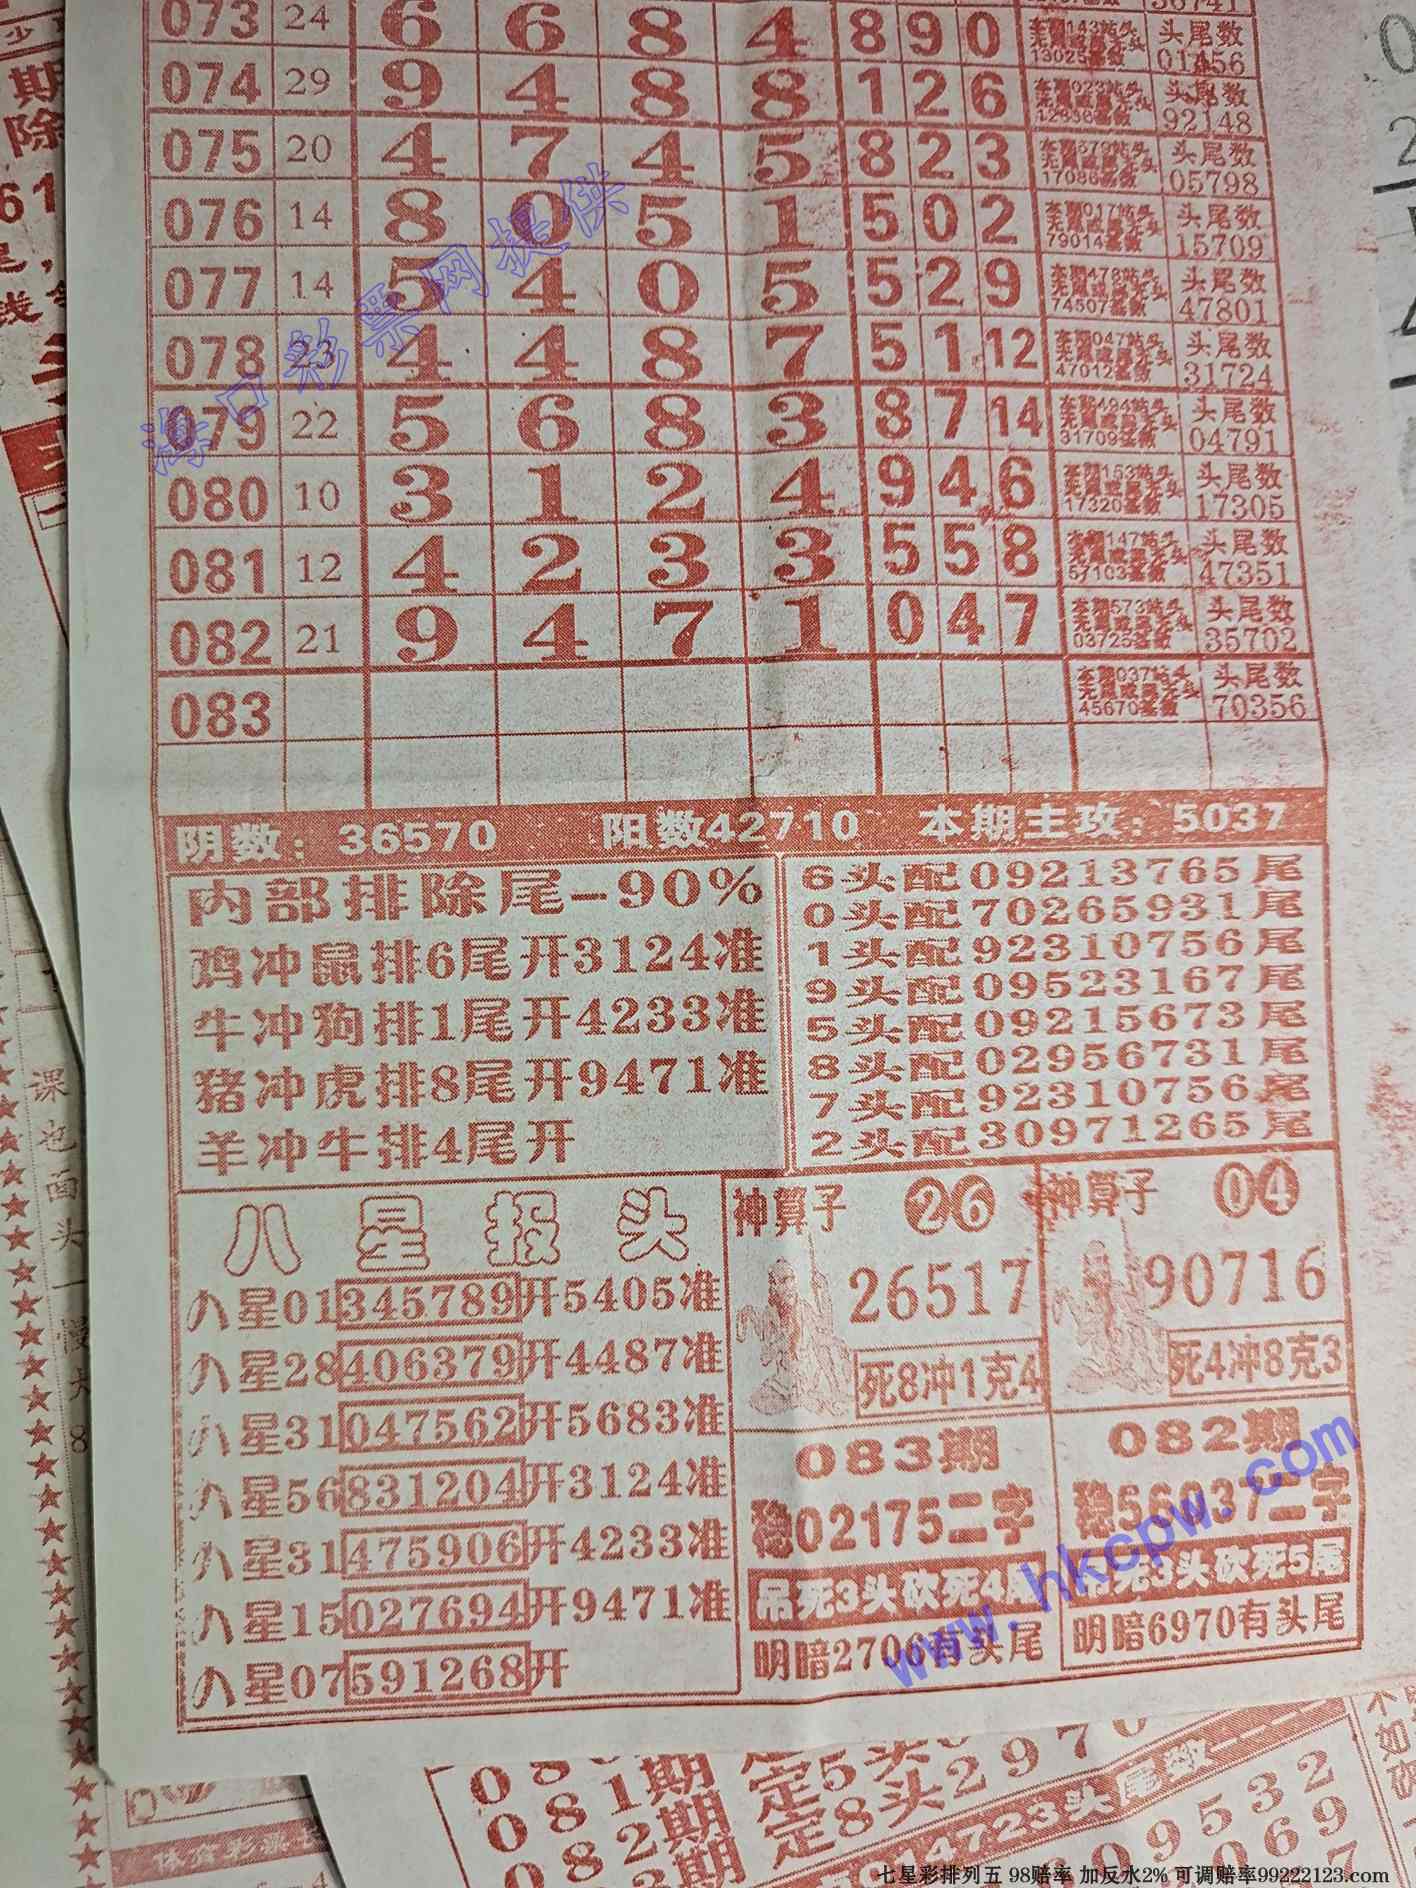 073 24 6 6 8 4 8 9 0 头尾数
13025基数 01456
074 29 9 4 8 8 1 2 6 头尾数
92148
075 20 4 7 4 5 8 2 3 头尾数
17086基数 05798
076 14 8 0 5 1 5 0 2 本期017站头 头尾数
79014基数 15709
077 14 5 4 0 5 5 2 9 本期478站头 头尾数
74507基数 47801
078 23 4 4 8 7 5 1 12 本期047站头 头尾数
47012基数 31724
079 22 5 6 8 3 8 7 14 本期494站头 头尾数
31709基数 04791
080 10 3 1 2 4 9 4 6 本期153站头 头尾数
17320基数 17305
081 12 4 2 3 3 5 5 8 本期147站头 头尾数
57103基数 47351
082 21 9 4 7 1 0 4 7 本期573站头 头尾数
03725基数 35702
083 本期037站头 头尾数
45670基数 70356
海口彩票网提供
阴数：36570 阳数42710 本期主攻：5037
内部排除尾-90%
鸡冲鼠排6尾开3124准
牛冲狗排1尾开4233准
猪冲虎排8尾开9471准
羊冲牛排4尾开
6头配09213765尾
0头配70265931尾
1头配92310756尾
9头配09523167尾
5头配09215673尾
8头配02956731尾
7头配92310756尾
2头配30971265尾
八星报头
八星01345789开5405准
八星28406379开4487准
八星31047562开5683准
八星56831204开3124准
八星31475906开4233准
八星15027694开9471准
八星07591268开
神算子 26
26517
死8冲1克4
神算子 04
90716
死4冲8克3
083期
稳02175二字
吊死3头砍死4尾
明暗2706有头尾
082期
稳56037二字
吊死3头砍死5尾
明暗6970有头尾
www.hkcpw.com
课也面头一
081期 定5头
082期 定8头2970
14723头尾数
七星彩排列五 98赔率 加反水2% 可调赔率99222123.com